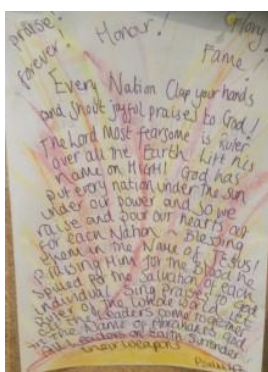 praise! Honour! Glory!
forever! Fame!
Every Nation Clap your hands
and shout joyful praises to God!
The Lord Most fearsome is Ruler
over all the Earth Lift his
name on High! God has
put every nation under the sun
under our power and so we
raise and pour our hearts out
for each Nation ~ Blessing
them in the Name of Jesus!
Praising Him for the Blood he
spilled for the Salvation of each
individual. Sing Praises to God
Ruler of the whole world. Let
Leaders come together
the Name of Abraham's God
all Leaders on Earth Surrender
their weapons
Psalm 47